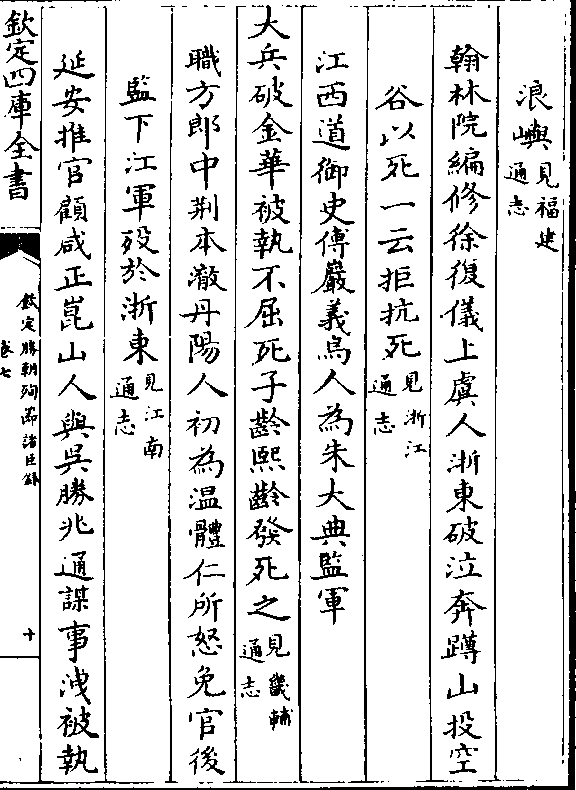 浪嶼見福建通志
翰林院編修徐復儀上虞人浙東破泣奔蹲山投空
谷以死一云拒抗死見浙江通志
江西道御史傅巖義烏人為朱大典監軍
大兵破金華被執不屈死子齡熙齡發死之見畿輔通志
職方郎中荆本澈丹陽人初為温體仁所怒免官後
監下江軍殁於浙東見江南通志
延安推官顧咸正崑山人與吳勝兆通謀事洩被執
欽定四庫全書
欽定勝朝殉節諸臣錄
卷七
十